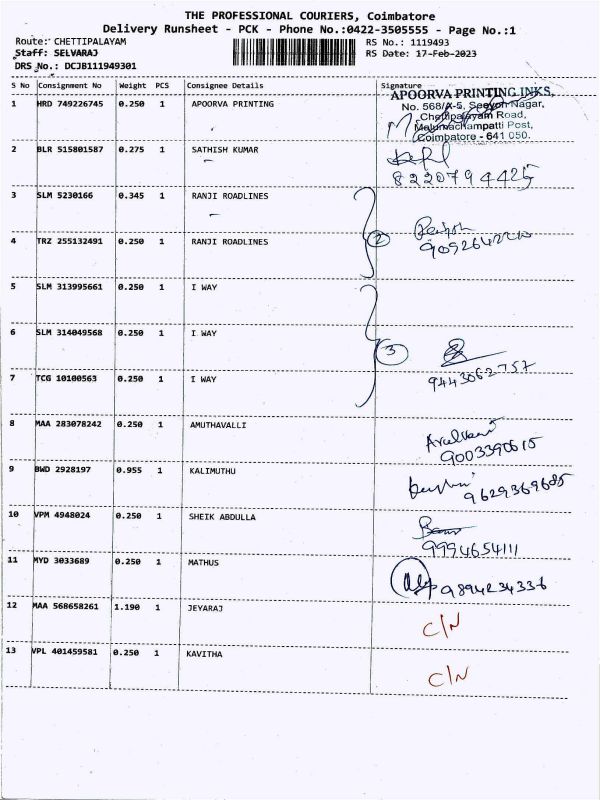 THE PROFESSIONAL COURIERS, Coimbatore
Delivery Runsheet - PCK - Phone No.:0422-3505555 - Page No.:1
Route: CHETTIPALAYAM RS No.: 1119493
Staff: SELVARAJ RS Date: 17-Feb-2023
DRS No.: DCJB111949301
S No Consignment No Weight PCS Consignee Details Signature
APOORVA PRINTING INKS,
1 HRD 749226745 0.250 1 APOORVA PRINTING
No. 568/A-5, Seeyon Nagar,
Chettipalayam Road,
Malumachampatti Post,
Coimbatore - 641 050.
2 BLR 515801587 0.275 1 SATHISH KUMAR
8220794425
3 SLM 5230166 0.345 1 RANJI ROADLINES
4 TRZ 255132491 0.250 1 RANJI ROADLINES
2
5 SLM 313995661 0.250 1 I WAY
6 SLM 314049568 0.250 1 I WAY
3
7 TCG 10100563 0.250 1 I WAY
9443062757
8 MAA 283078242 0.250 1 AMUTHAVALLI
9003390615
9 BWD 2928197 0.955 1 KALIMUTHU
9629369685
10 VPM 4948024 0.250 1 SHEIK ABDULLA
9994654111
11 MYD 3033689 0.250 1 MATHUS
9894234336
12 MAA 568658261 1.190 1 JEYARAJ
C/N
13 VPL 401459581 0.250 1 KAVITHA
C/N